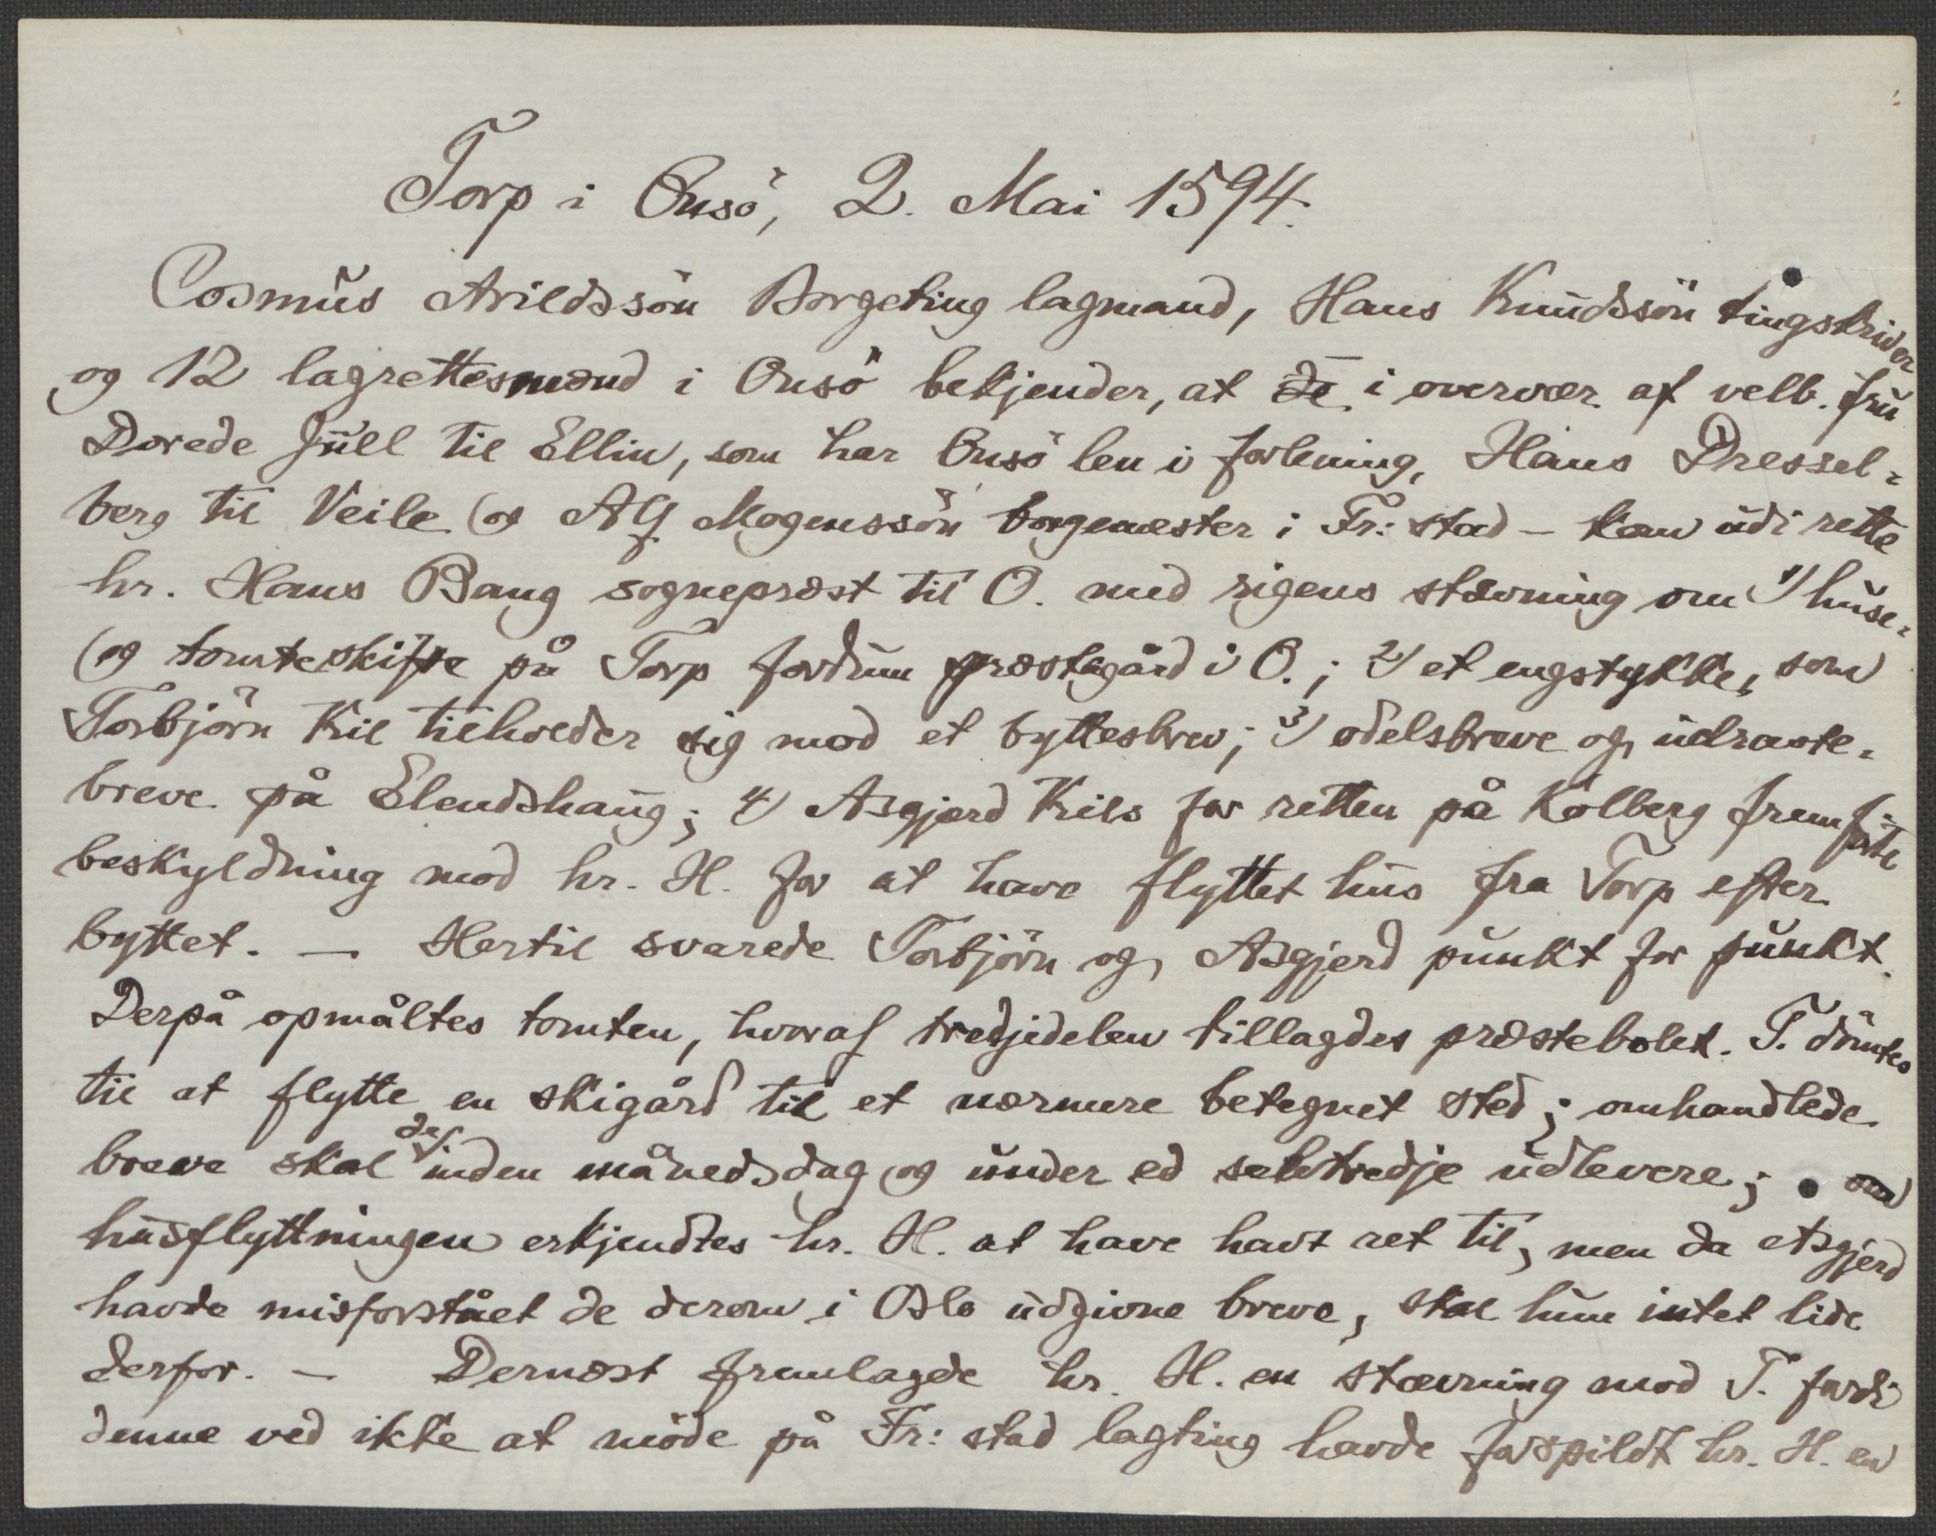 Torp i Onsö, 2. Mai 1594.
Cosmus Arildssön Borgeting lagmand, Hans Knudssön tingskriver
og 12 lagrettesmænd i Onsö bekjender, at de i overvær af velb. fru
Dorede Juell til Ellin, som har Onsö len i forlening, Hans Dressel-
berg til Veile og Alf Mogenssön borgemester i Fr:stad – kom udi rette
hr. Hans Bang sogneprest til O. med rigens stævning om 1) huse-
og tomteskifte på Torp fordum præstegård i O.; 2) et engstykke, som
Torbjörn Kil tilholder sig mod et byttesbrev; 3) odelsbreve og udraste-
breve på Elendshaug; 4) Asgjærd Kils for retten på Kolberg fremförte
beskyldning mod hr. H. for at have flyttet hus fra Torp efter
byttet. – Hertil svarede Torbjörn og Asgjerd punkt for punkt.
Derpå opmåltes tomten, hvoraf tredjedelen tillagdes præstebolet. T. dömtes
til at flytte en skigård til et nærmere betegnet sted; omhandlede
breve skal inden månedsdag og under ed selvtredje udlevere;
husflyttningen erkjendtes hr. H. at have havt ret til, men da Asgjerd
havde misforstået de derom i Oslo udgivne breve, skal hun intet lide
derfor. – Dernæst fremlagde hr. H. en stævning mod T. fordi
denne ved ikke at möde på Fr:stad lagting havde forspildt hr. H. en